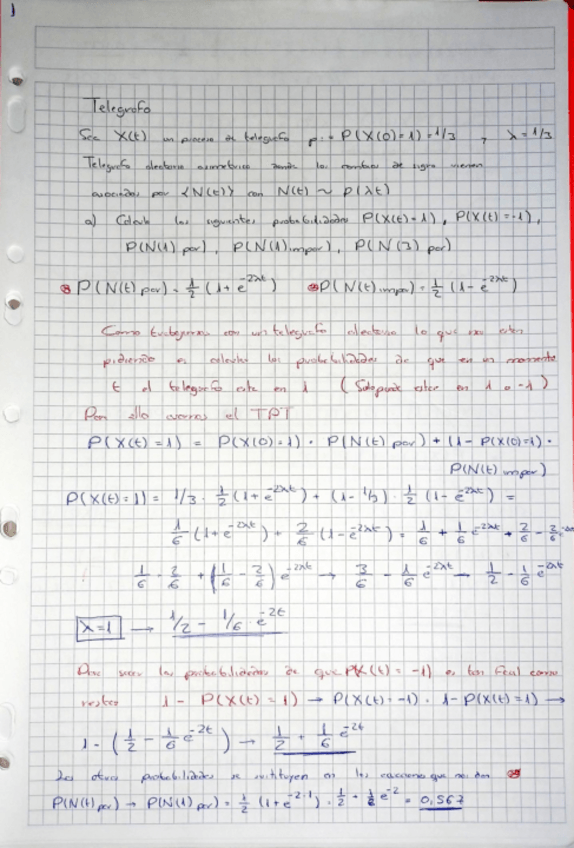 1
Telegrafo
Sea X(t) un proceso de telegrafo p:= P(X(0)=1)=1/3 y λ=1/3
Telegrafo aleatorio asimetrico donde los cambios de signo vienen
asociados por {N(t)} con N(t) ~ P(λt)
a) Calcula las siguientes probabilidades P(X(t)=1), P(X(t)=-1),
P(N(1) par), P(N(1) impar), P(N(3) par)
P(N(t) par) = 1/2 (1+e^-2λt) P(N(t) impar) = 1/2 (1-e^-2λt)
Como trabajamos con un telegrafo aleatorio lo que nos estan
pidiendo es calcular las probabilidades de que en un momento
t el telegrafo este en 1 (Solo puede estar en 1 o -1)
Por ello usamos el TPT
P(X(t)=1) = P(X(0)=1) · P(N(t) par) + (1-P(X(0)=1) ·
P(N(t) impar)
P(X(t)=1) = 1/3 · 1/2 (1+e^-2λt) + (1-1/3) · 1/2 (1-e^-2λt) =
1/6 (1+e^-2λt) + 2/6 (1-e^-2λt) = 1/6 + 1/6 e^-2λt + 2/6 - 2/6 e^-2λt
1/6 + 2/6 + (1/6 - 2/6) e^-2λt → 3/6 - 1/6 e^-2λt → 1/2 - 1/6 e^-2λt
λ=1 → 1/2 - 1/6 · e^-2t
Para sacar las probabilidades de que P(X(t)=-1) es tan facil como
restar 1 - P(X(t)=1) → P(X(t)=-1) = 1-P(X(t)=1) →
1 - (1/2 - 1/6 e^-2t) → 1/2 + 1/6 e^-2t
Las otras probabilidades se sustituyen en las ecuaciones que nos dan
P(N(t) par) → P(N(1) par) = 1/2 (1+e^-2·1) = 1/2 + 1/2 e^-2 = 0,567